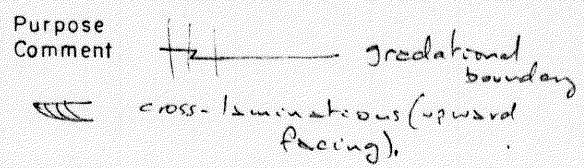 Purpose
Comment gradational
boundary
cross-laminations (upward
facing).